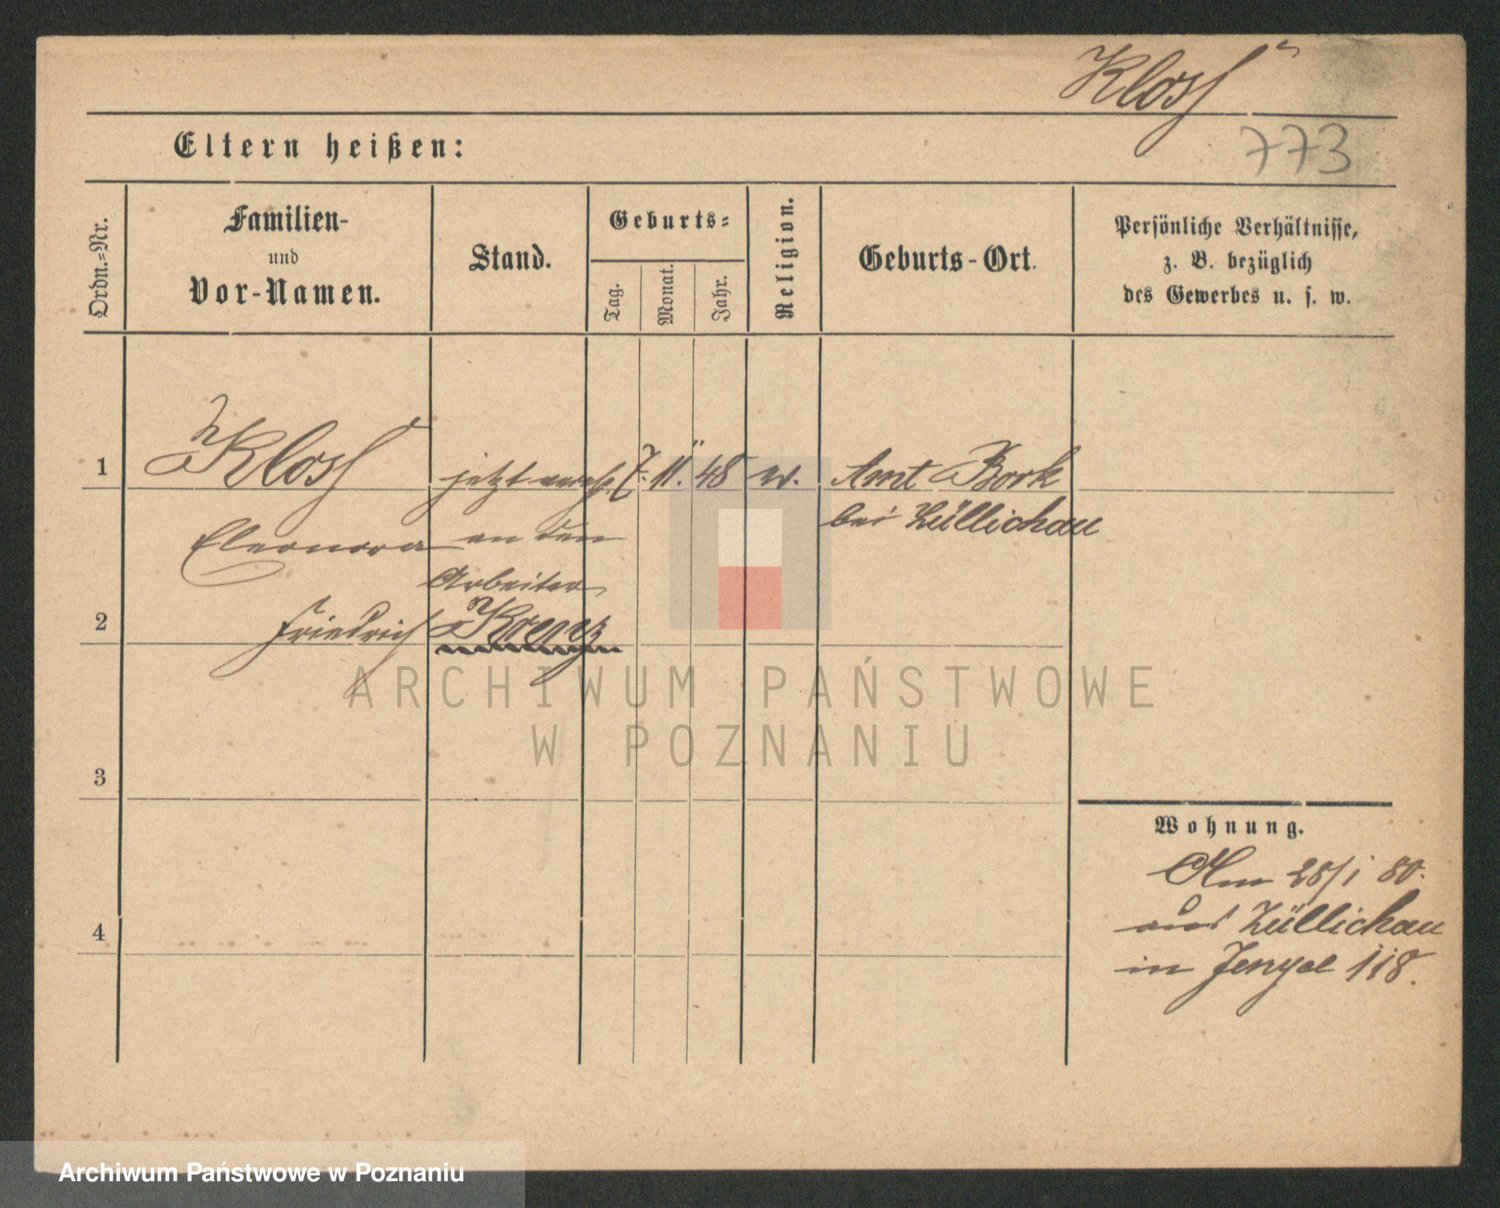 Klosß
773
Eltern heißen:
Ordn.-Nr.
Familien-
und
Vor-Namen.
Stand.
Geburts-
Tag.
Monat.
Jahr.
Religion.
Geburts-Ort.
Persönliche Verhältnisse,
z. B. bezüglich
des Gewerbes u. s. w.
1
Klosß jetzt vereh. 7. 11. 48 w. Amt Bork
bei Züllichau
Eleonora an den
Arbeiter
2
Friedrich Krentz
ARCHIWUM PAŃSTWOWE
W POZNANIU
3
4
Wohnung.
Am 28/1 80.
aus Züllichau
in 118.
Archiwum Państwowe w Poznaniu